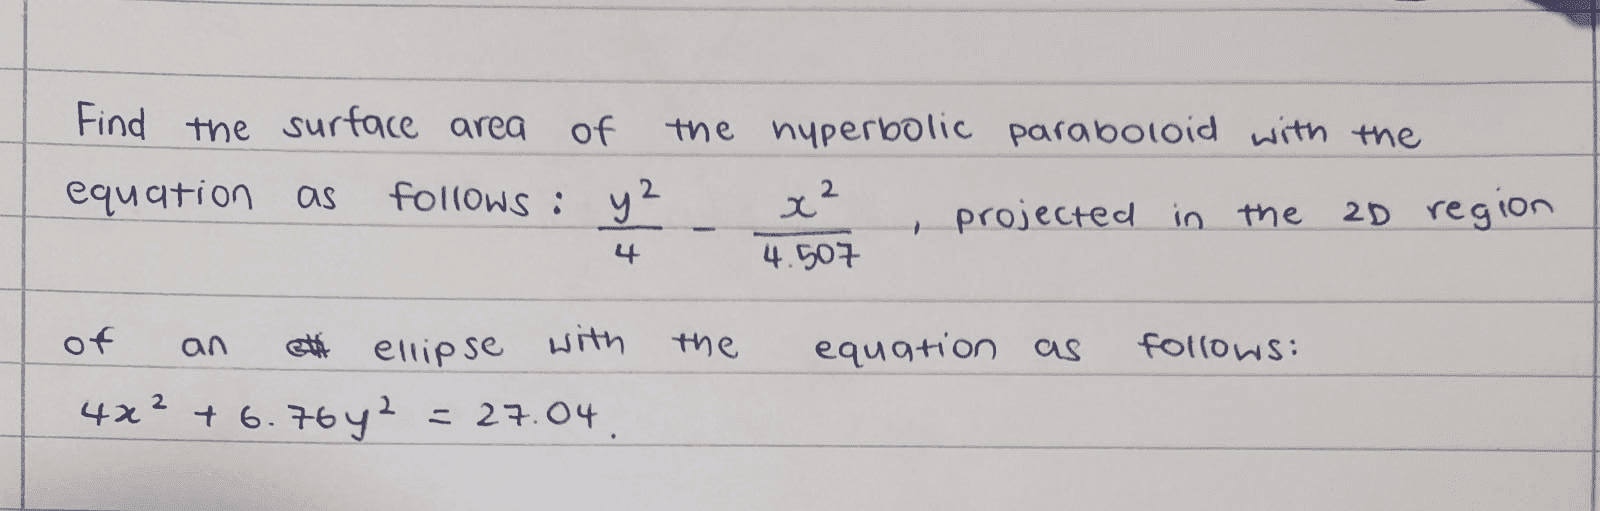 Find the surface area of the hyperbolic paraboloid with the
equation as follows: y²/4 - x²/4.507, projected in the 2D region
of an ellipse with the equation as follows:
4x² + 6.76y² = 27.04.